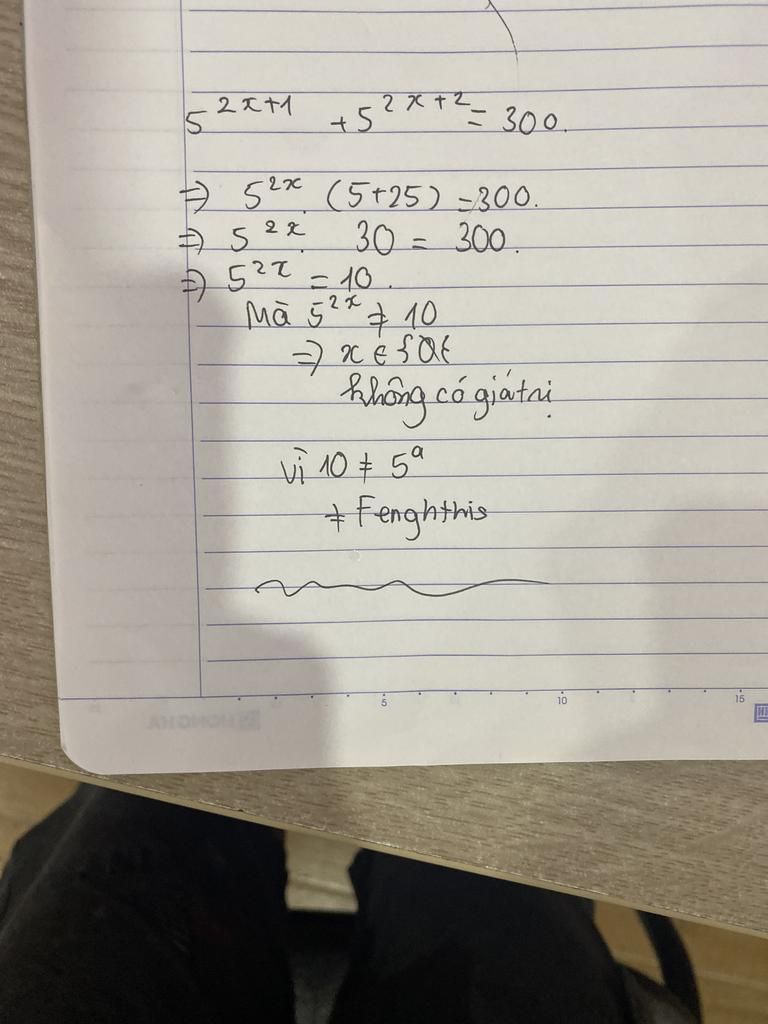 5^{2x+1} + 5^{2x+2} = 300.
⇒ 5^{2x}. (5+25) = 300.
⇒ 5^{2x}. 30 = 300.
⇒ 5^{2x} = 10.
Mà 5^{2x} ≠ 10
⇒ x ∈ {Ø}
không có giá trị
vì 10 ≠ 5^a
≠ Fenghthis
5 10 15
HONG HA